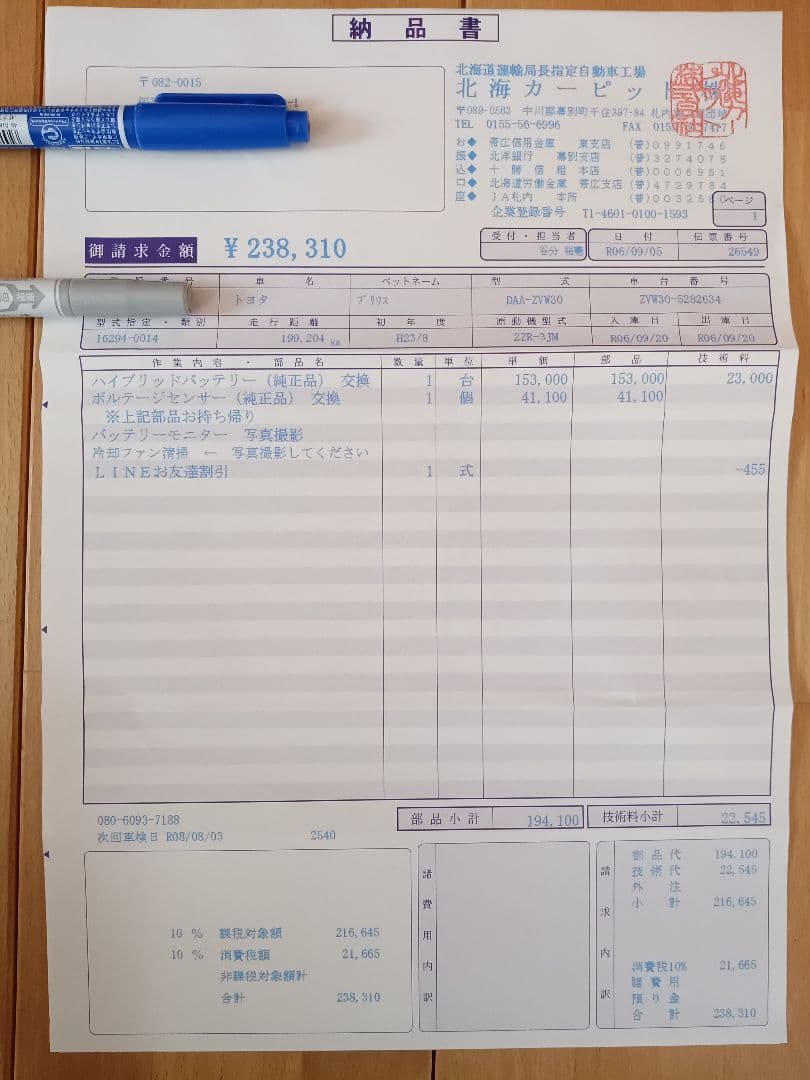 納品書
〒082-0015
-1
北海道運輸局長指定自動車工場
北海カーピット
〒089-0563 中川郡幕別町千住397-84 札内
TEL 0155-56-6996 FAX
お◆ 帯広信用金庫 東支店 (普)0991746
振◆ 北洋銀行 幕別支店 (普)3274078
込◆ 十勝信組 本店 (普)0006951
口◆ 北海道労働金庫 帯広支店 (普)4729784
座◆ JA札内 本所 (普)00325
企業登録番号 T1-4601-0100-1593
ページ
1
御請求金額 ¥238,310
受付・担当者 日付 伝票番号
谷分 R06/09/05 26549
番号 車名 ペットネーム 型式 車台番号
トヨタ プリウス DAA-ZVW30 ZVW30-5282634
型式指定・類別 走行距離 初年度 原動機型式 入庫日 出庫日
16294-0014 199,204 km H23/8 2ZR-3JM R06/09/20 R06/09/20
作業内容・部品名 数量 単位 単価 部品 技術料
ハイブリッドバッテリー(純正品) 交換 1 台 153,000 153,000 23,000
ボルテージセンサー(純正品) 交換 1 個 41,100 41,100
※上記部品お持ち帰り
バッテリーモニター 写真撮影
冷却ファン清掃 ← 写真撮影してください
LINEお友達割引 1 式 -455
080-6093-7188
次回車検日 R08/08/03 2540
部品小計 194,100 技術料小計 22,545
10 % 課税対象額 216,645
10 % 消費税額 21,665
非課税対象額計
合計 238,310
諸費用内訳
請求内訳
部品代 194,100
技術代 22,545
外注
小計 216,645
消費税10% 21,665
諸費用
預り金
合計 238,310